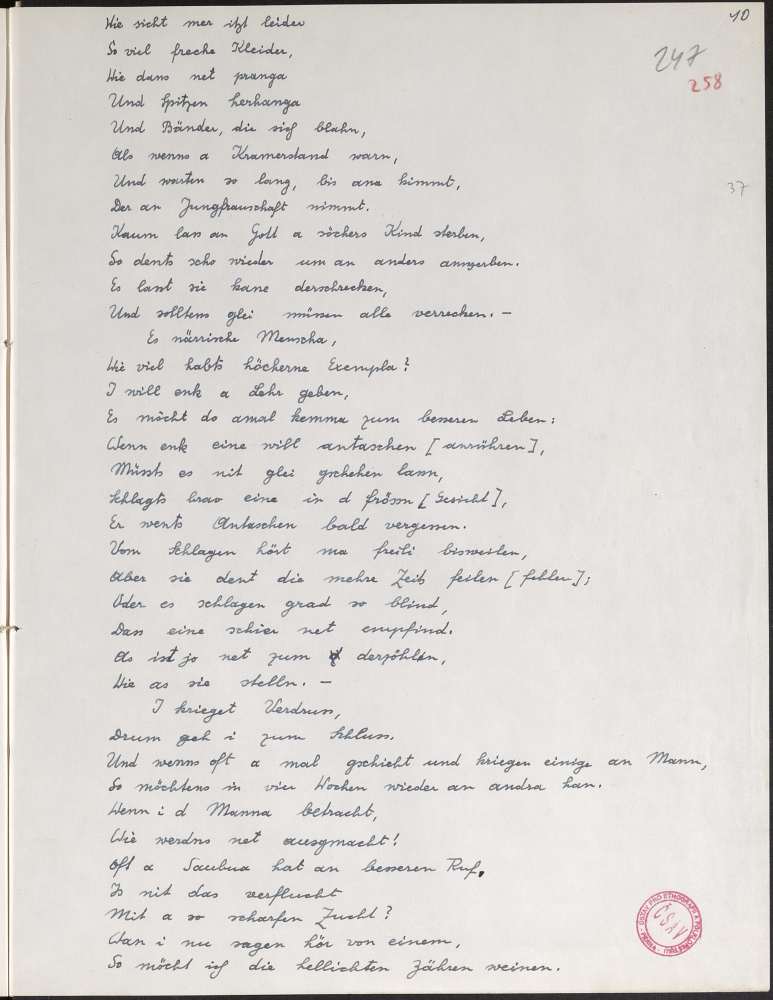 10
247
258
37
Wie sicht mer itzt leider
So viel freche Kleider,
Wie dans net pranga
Und Spitzen herhanga
Und Bänder, die sich blahn,
Als wenns a Kramerstand warn,
Und warten so lang, bis ana kimmt,
Der an Jungfrauschaft nimmt.
Kaum lass an Gott a söchers Kind sterben,
So dents scho wieder um an anders anwerben.
Es lant sie kane derschrecken,
Und solltens glei müssen alle verrecken. –
Es närrische Menscha,
Wie viel habts höcherne Exempla?
I will enk a Lehr geben,
Es möcht do amal kemma zum besseren Leben:
Wenn enk eine will antaschen [anrühren],
Müssts es nit glei gschehen lassn,
Schlagts brav eine in d frössn [Gesicht],
Er wents Antaschen bald vergessen.
Vom Schlagen hört ma freili bisweilen,
Aber sie dent die mehre Zeit feilen [fehlen];
Oder es schlagen grad so blind,
Dass eine schier net empfind.
As ist jo net zum derzöhlen,
Wie as sie stelln. –
I krieget Verdruss,
Drum geh i zum Schluss.
Und wenns oft a mal gschicht und kriegen einige an Mann,
So möchtens in vier Wochen wieder an andra han.
Wenn i d Manna betracht,
Wie werdns net ausgmacht!
Oft a Saubua hat an besseren Ruf,
Is nit das verflucht
Mit a so scharfen Zucht?
Wan i nu sagen hör von einem,
So möcht ich die hellichten Zähren weinen.
ČSAV